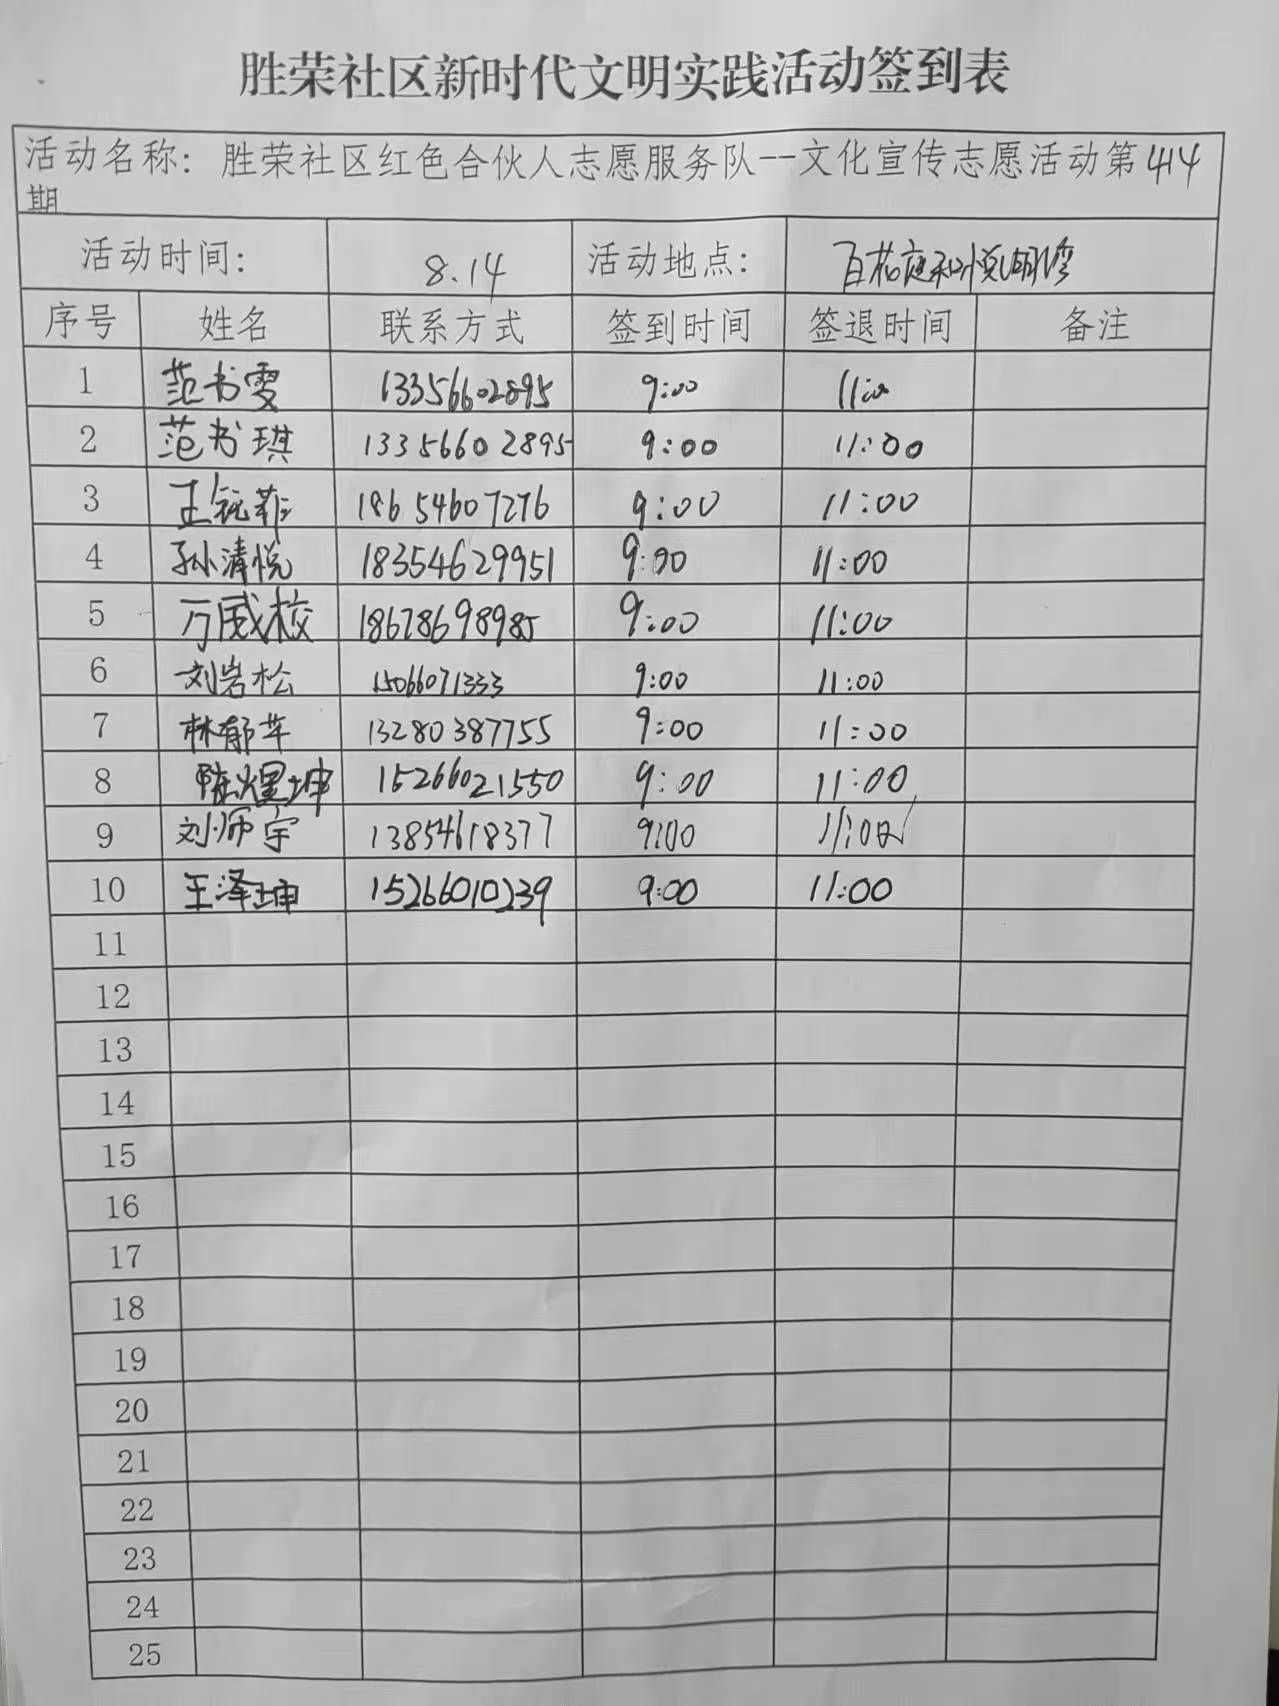 胜荣社区新时代文明实践活动签到表
活动名称：胜荣社区红色合伙人志愿服务队--文化宣传志愿活动第44
期
活动时间： 8.14 活动地点： 百花庭和悦湖湾
序号 姓名 联系方式 签到时间 签退时间 备注
1 范书雯 13356602895 9:00 11:00
2 范书琪 13356602895 9:00 11:00
3 王锐菲 18654607276 9:00 11:00
4 孙清悦 18354629951 9:00 11:00
5 万威校 18678698985 9:00 11:00
6 刘岩松 15066071333 9:00 11:00
7 林郁苹 13280387755 9:00 11:00
8 陈煜坤 15266021550 9:00 11:00
9 刘师宇 13854618377 9:00 11:00
10 王泽坤 15266010239 9:00 11:00
11
12
13
14
15
16
17
18
19
20
21
22
23
24
25